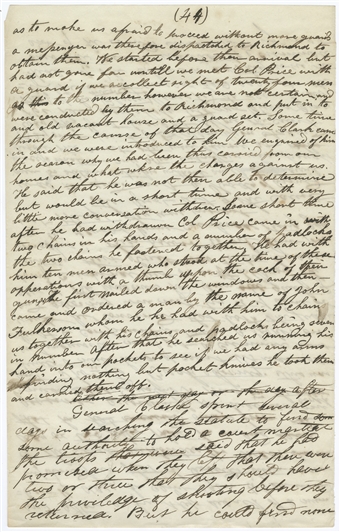 (44)
as to make us afraid to proceed without more guard
a messenger was therefore dispatched to Richmond to
obtain them. We started before their arrival but
had not gone far untill we met Col Price with
a guard of we recollect eight or twenty four men
as to the number however we are not certain and
were conducted by them to Richmond and put in to
and old vacant house and a guard set. Some time
through the course of that day General Clark came
in and we were introduced to him We enquired of him
the reason why we had been thus carried from our
homes and what where the charges against us.
He said that he was not then able to determine
but would be in a short time and with very
little more conversation withdrew. Some short time
after he had withdrawn Col Price came in with
two chains in his hands and a number of padlocks
the two chains he fastened together. He had with
him ten men armed who stood at the time of these
opperations with a thumb upon the cock of their
guns. He first nailed down the windows and then
came and ordered a man by the name of John
Fulkerson whom he had with him to chain
us together with his chains and padlocks being seven
in number. After that he searched us running his
hand into our pockets to see if we had any arms
finding nothing but pocket knives he took them
and carried them off.
General Clark spent several
days in searching the statute to find some
some authority to hold a court martial
the troops said that he had
promised when they left that there were
two or three that they should have
the priviledge of shooting before they
returned. But he could find none